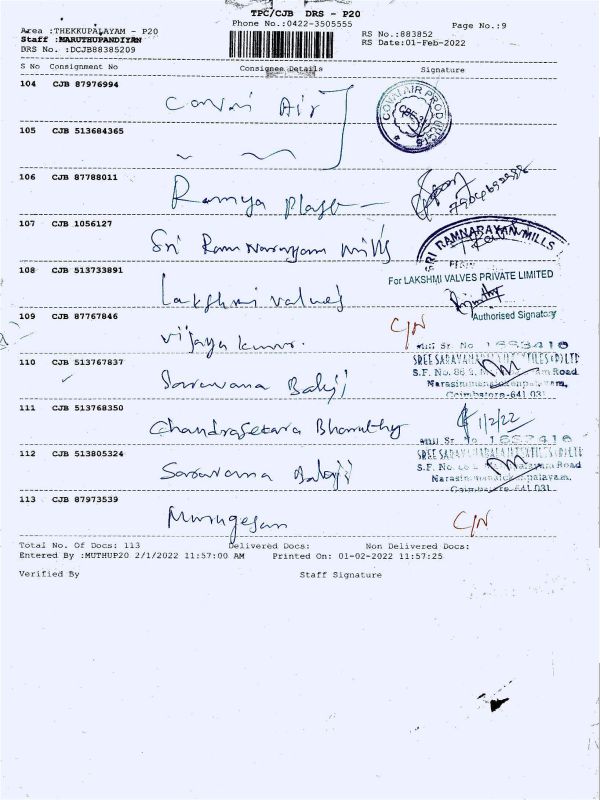 TPC/CJB DRS - P20
Phone No.:0422-3505555
Page No.:9
Area :THEKKUPALAYAM - P20
Staff :MARUTHUPANDIYAN
DRS No. :DCJB88385209
RS No.:883852
RS Date:01-Feb-2022
S No Consignment No Consignee Details Signature
104 CJB 87976994
Covai Air
COVAI AIR PRODUCTS
105 CJB 513684365
106 CJB 87788011
Ramya Plast
107 CJB 1056127
Sri Ram Narayan Mills
SRI RAMNARAYAN MILLS
108 CJB 513733891
Lakshmi Valves
For LAKSHMI VALVES PRIVATE LIMITED
Authorised Signatory
109 CJB 87767846
Vijaya kumar.
C/N
110 CJB 513767837
Saravana Balaji
S.F. No. 86
am Road
111 CJB 513768350
Chandrasekara Bharathy
1/2/22
112 CJB 513805324
Saravana Balaji
S.F. No.
Road
113 CJB 87973539
Murugesan
C/N
Total No. Of Docs: 113 Delivered Docs: Non Delivered Docs:
Entered By :MUTHUP20 2/1/2022 11:57:00 AM Printed On: 01-02-2022 11:57:25
Verified By Staff Signature